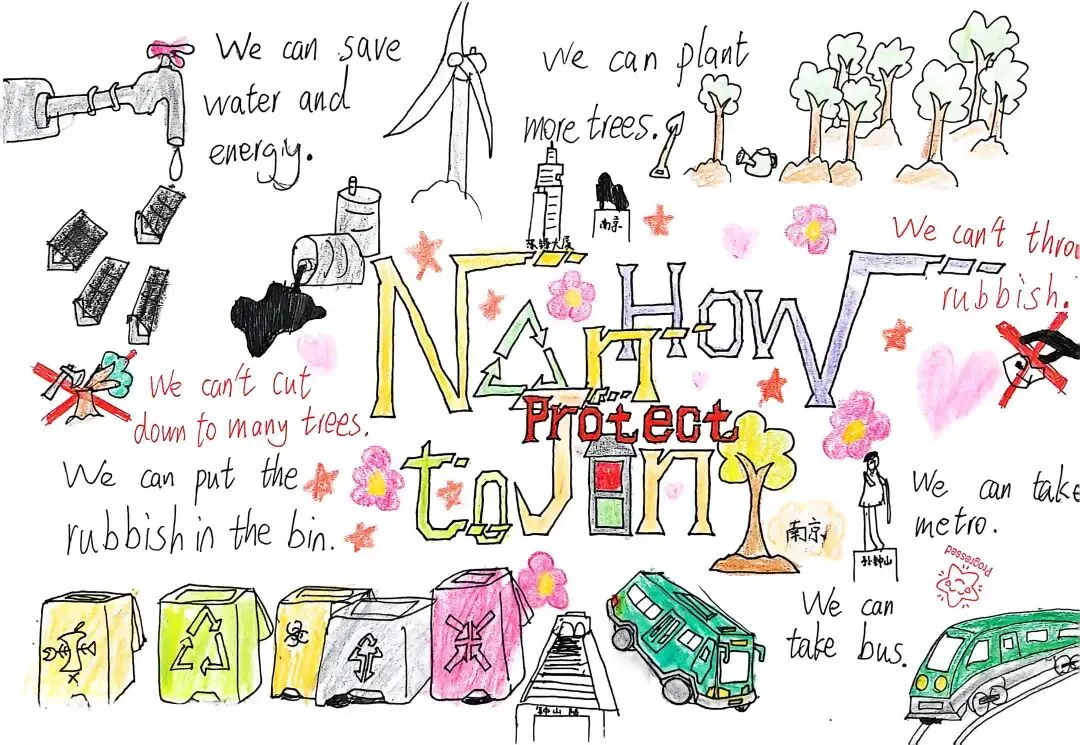 We can save
water and
energy.
We can plant
more trees.
大厦
南京
We can't thro
rubbish.
HoW
Nan
Protect
to
Jin
We can't cut
down to many trees.
We can put the
rubbish in the bin.
南京
孙钟山
We can take
metro.
progressed
We can
take bus.
钟山